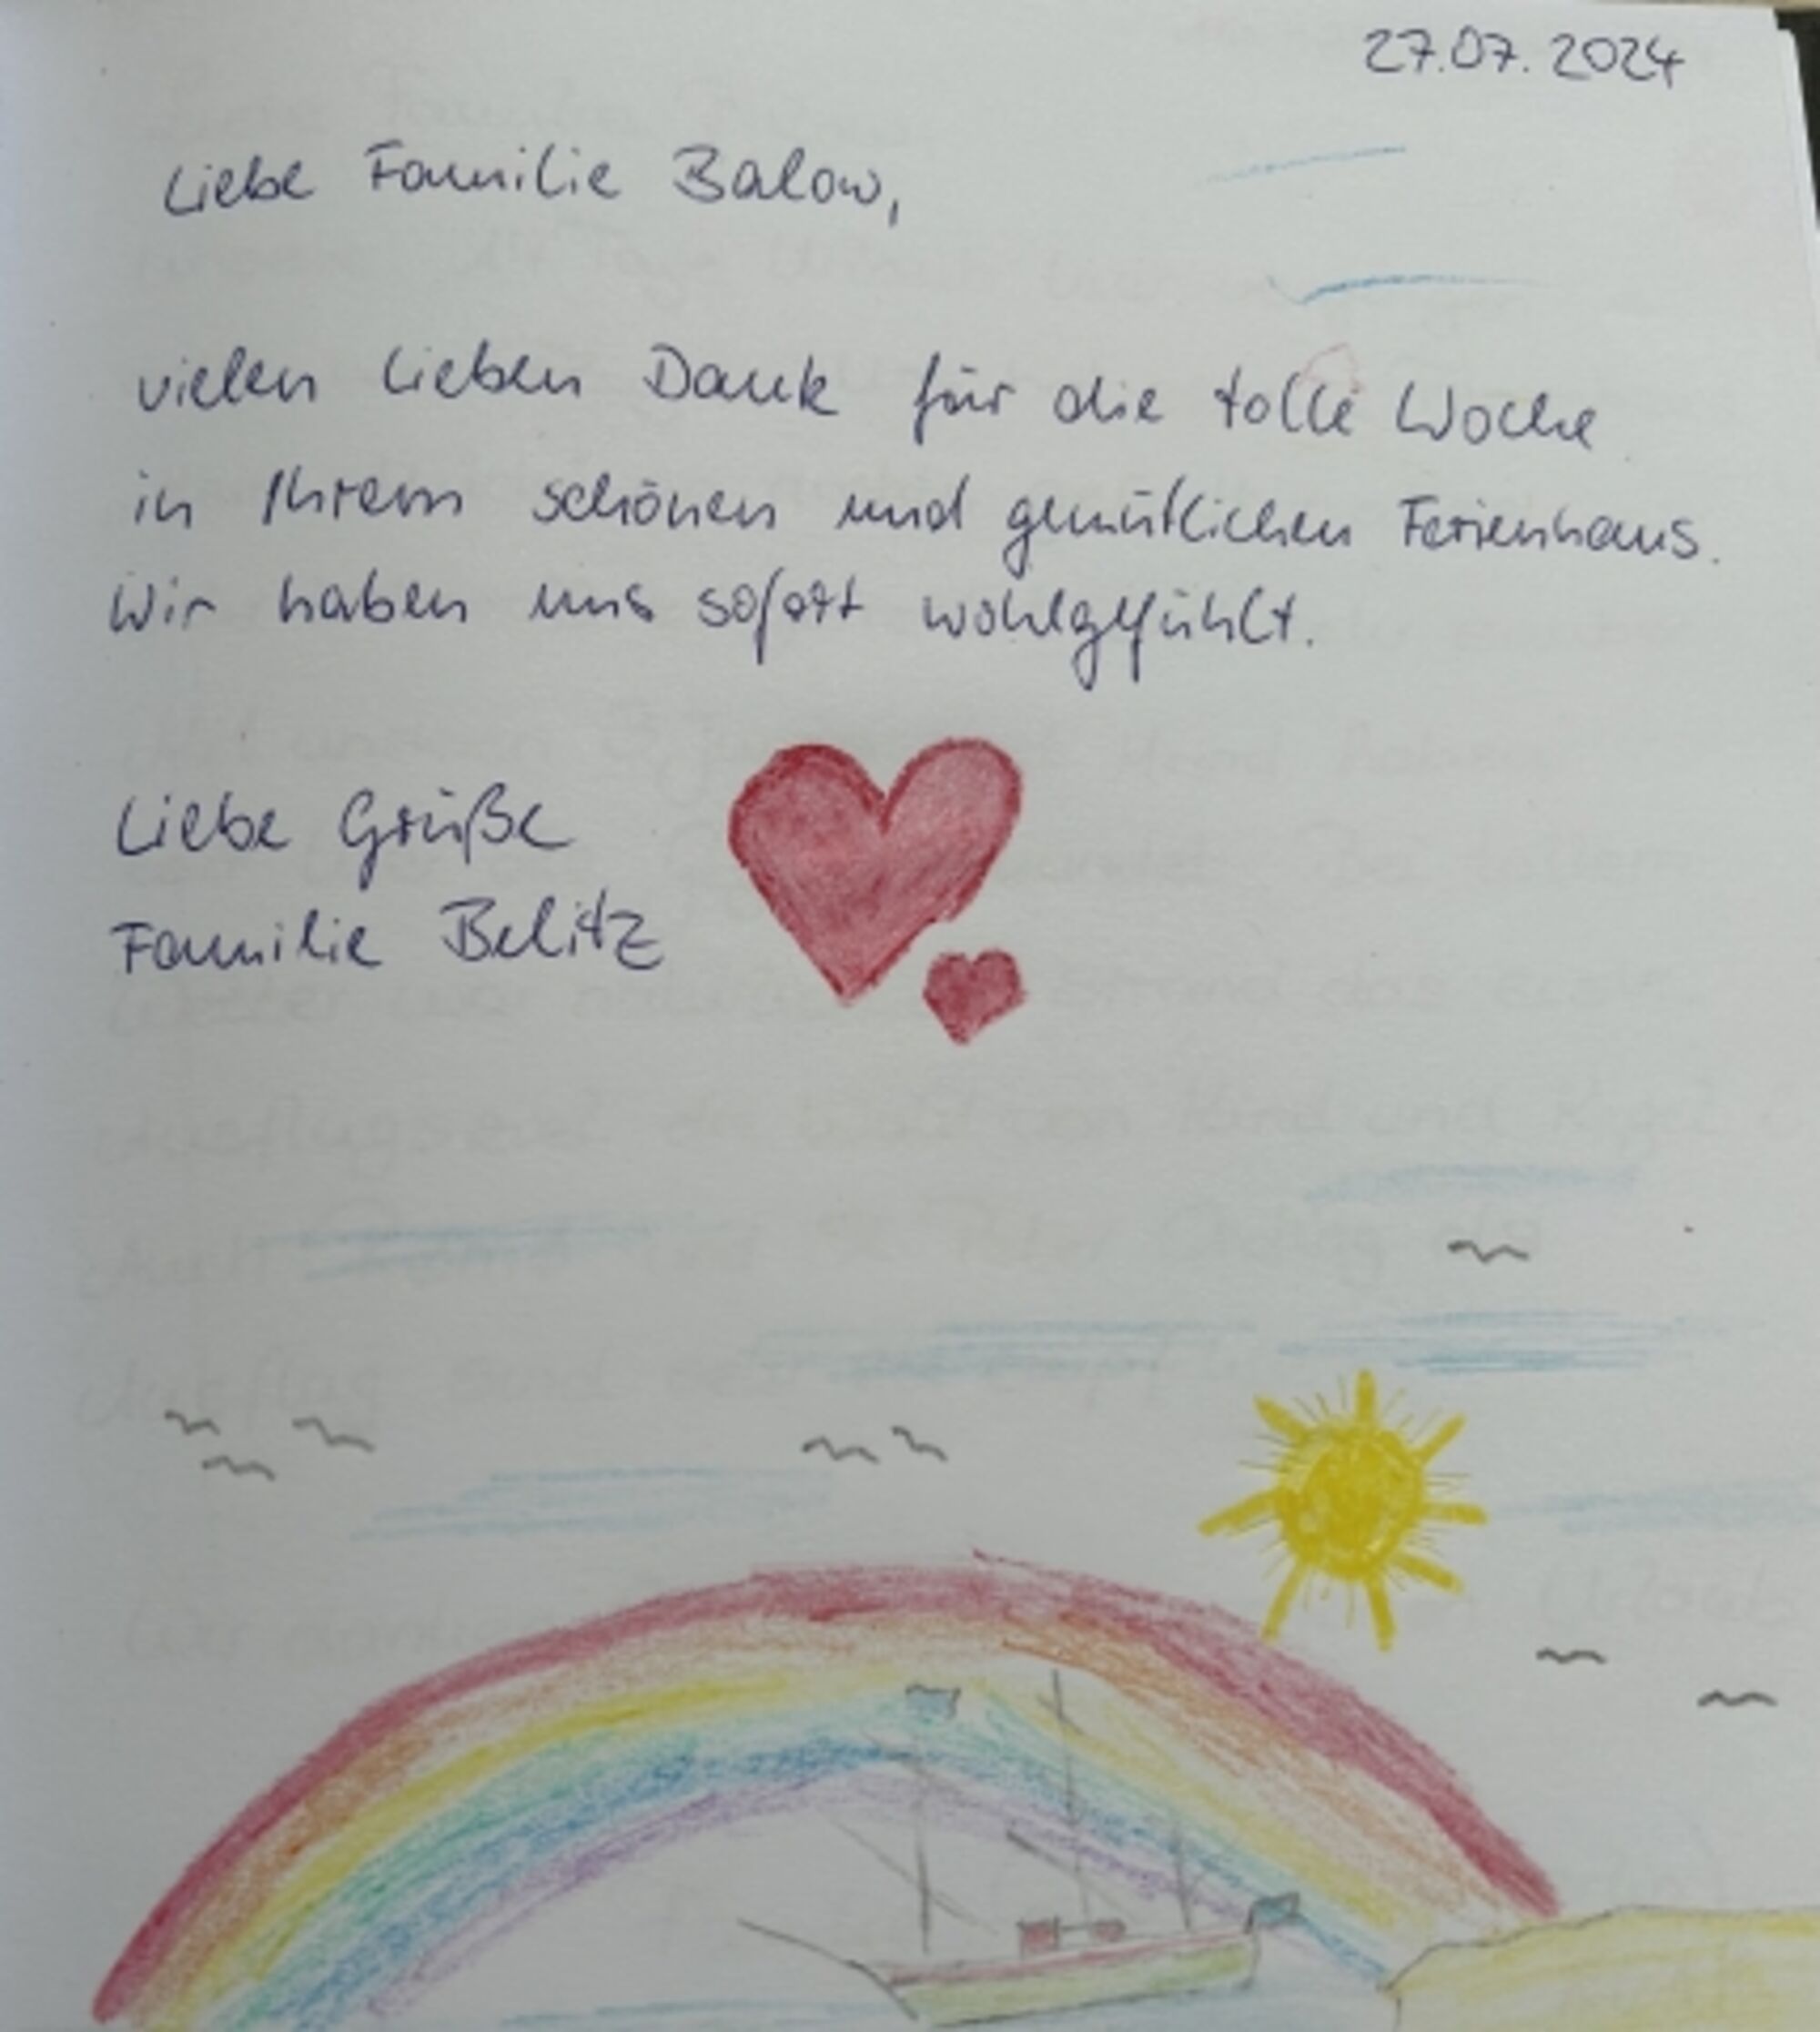 27.07.2024
Liebe Familie Balow,
vielen lieben Dank für die tolle Woche
in Ihrem schönen und gemütlichen Ferienhaus.
Wir haben uns sofort wohlgefühlt.
Liebe Grüße
Familie Belitz